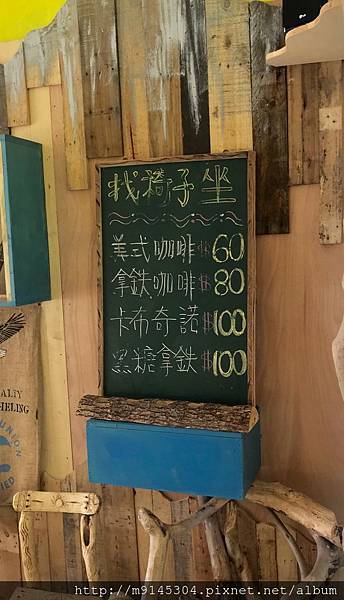 找椅子坐
美式咖啡$60
拿鐵咖啡$80
卡布奇諾$100
黑糖拿鐵$100
http://m9145304.pixnet.net/album